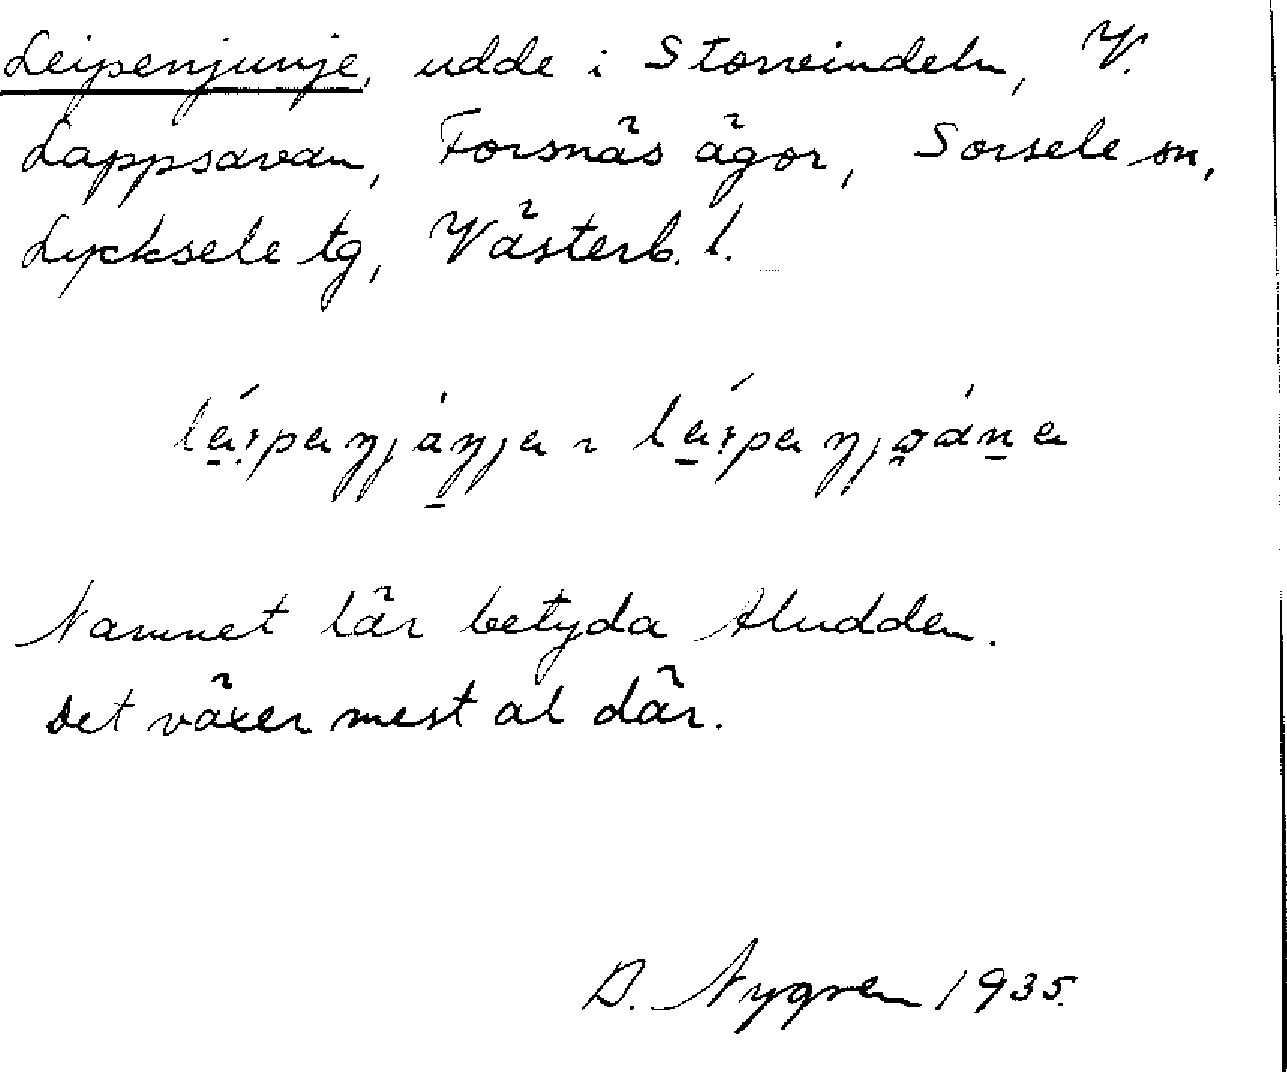 Leipenjunje, udde i Storvindeln, V.
Lappsavan, Forsnäs ägor, Sorsele sn,
Lycksele tg, Västerb. l.
Namnet lär betyda Aludden.
Det växer mest al där.
D. Nygren 1935.